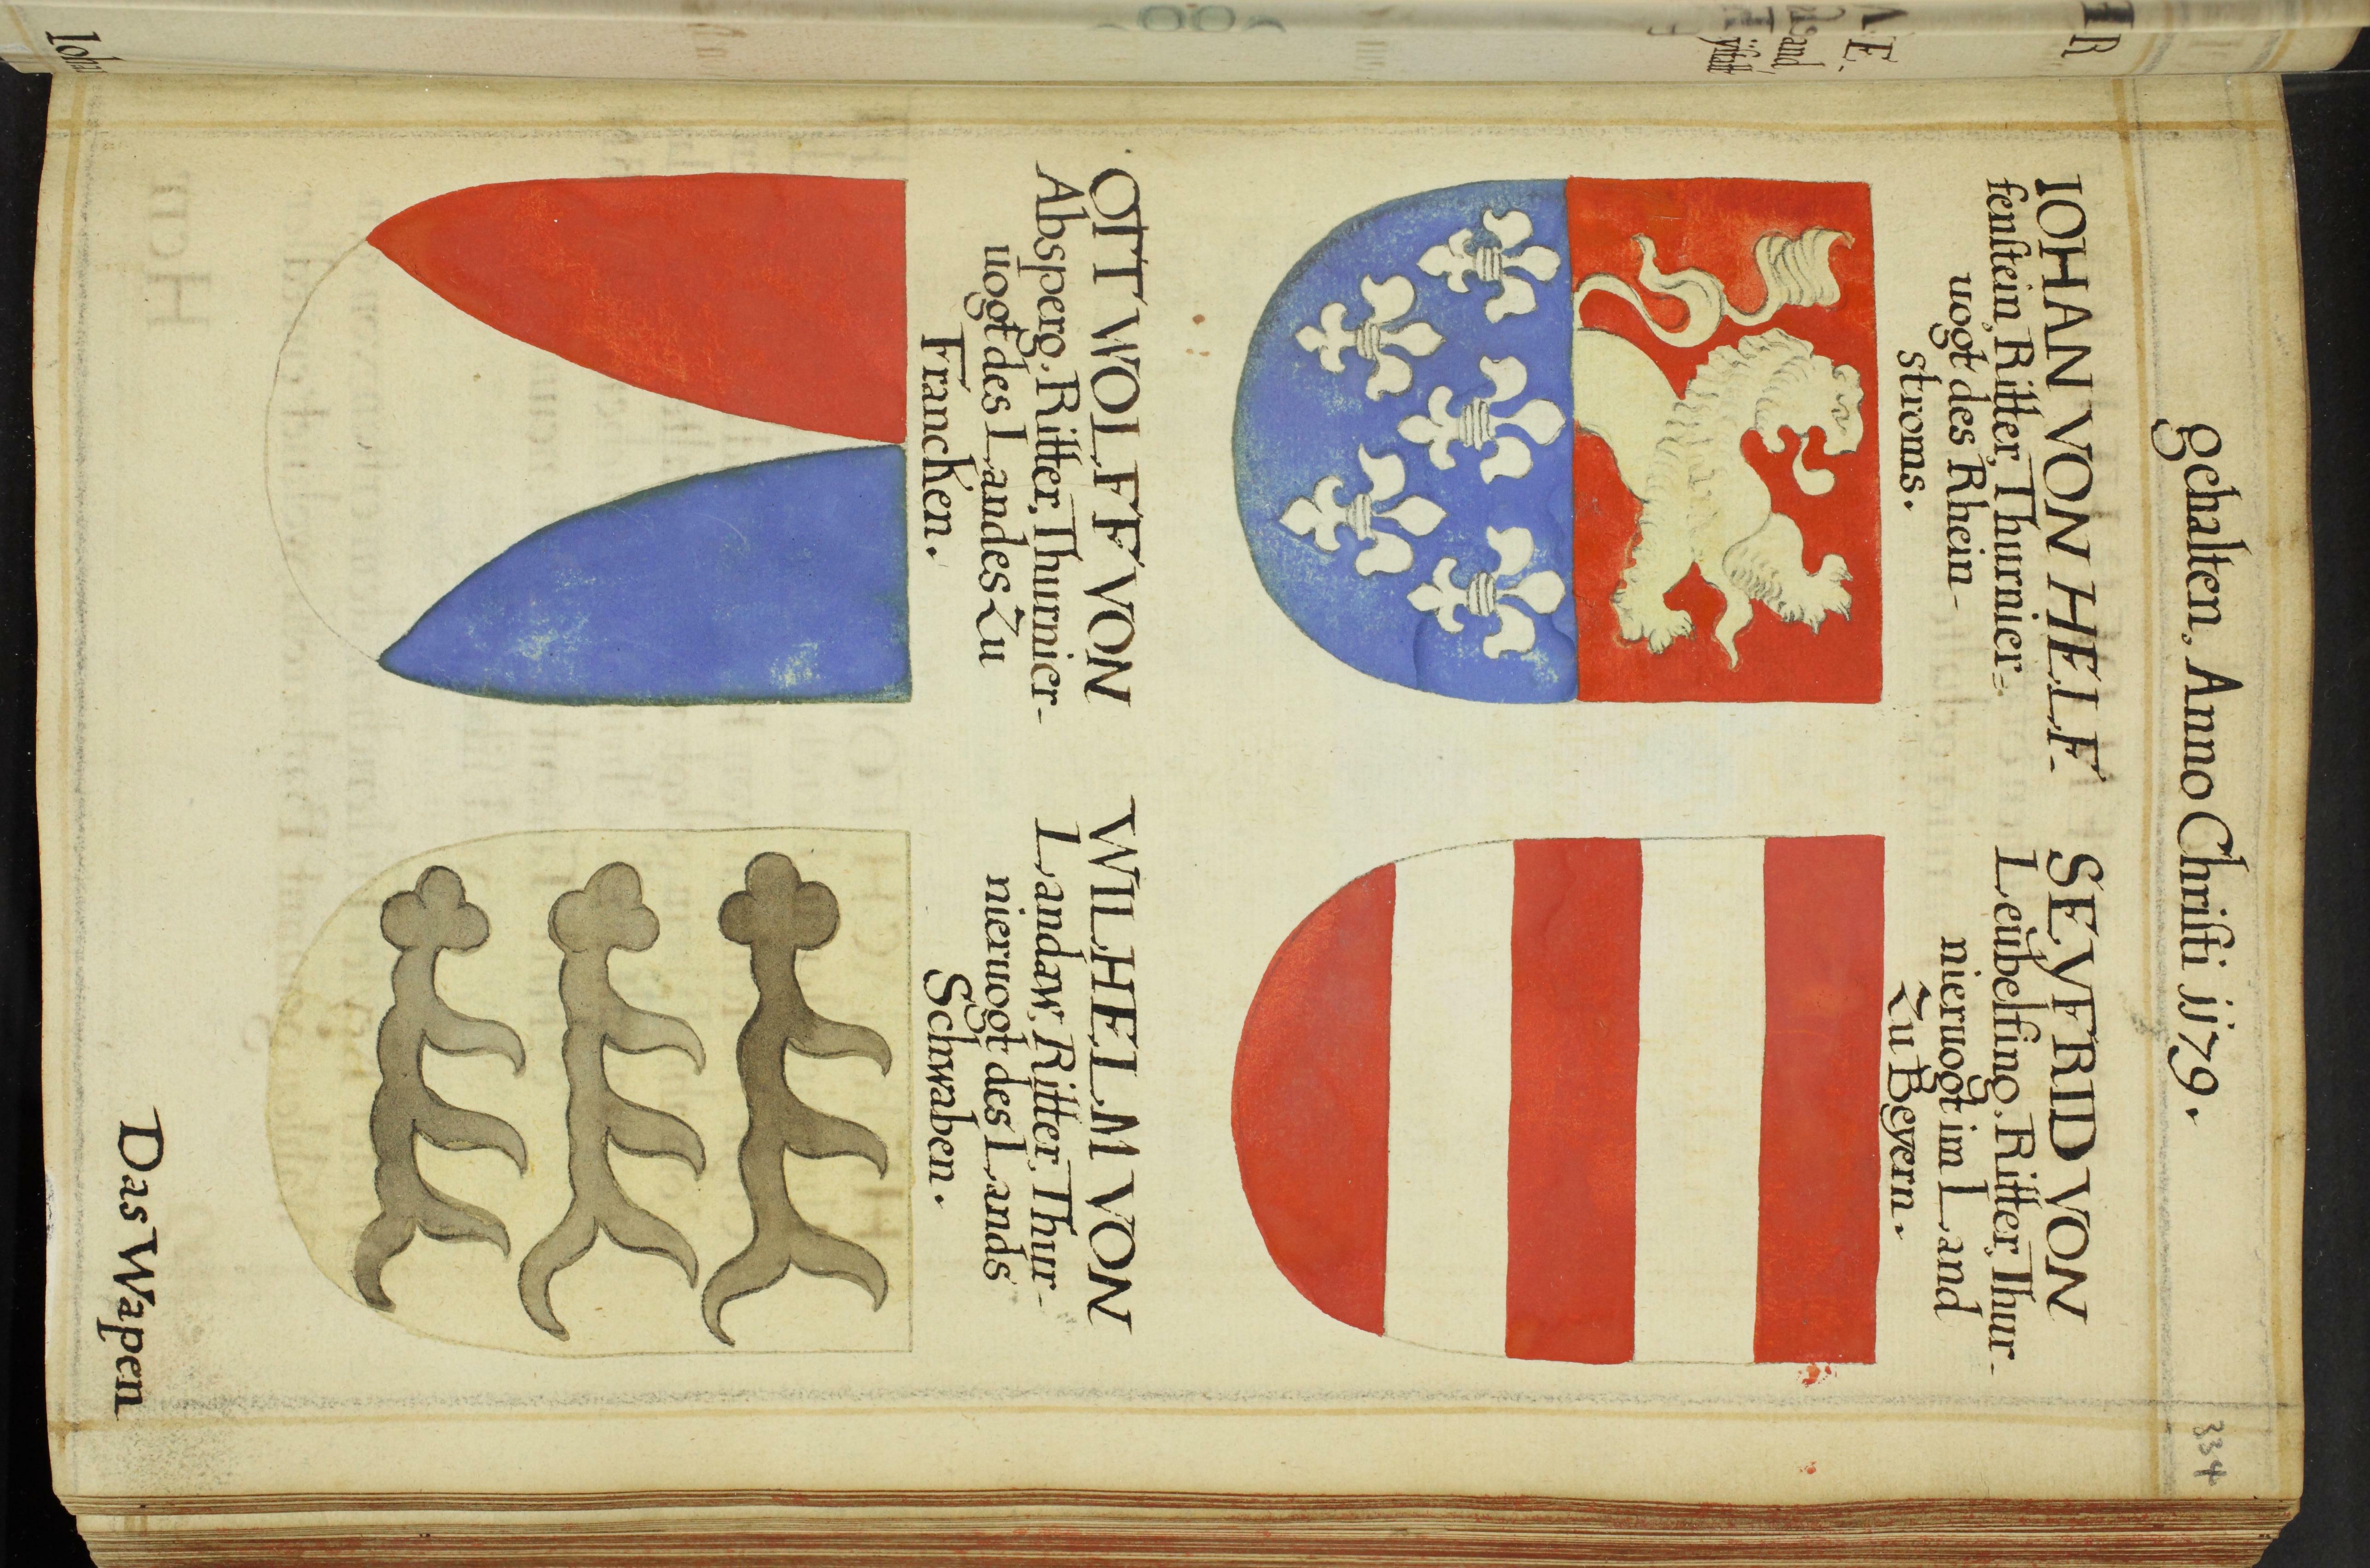 gehalten, Anno Christi jj79.
334
IOHAN VON HELF-
fenstein, Ritter, Thurnier=
uogt des Rhein-
stroms.
SEYFRID VON
Leübelfing, Ritter, Thur-
nieruogt im Land
Zu Beyern.
OTT WOLFF VON
Absperg, Ritter, Thurnier-
uogt des Landes Zu
Francken.
WILHELM VON
Landaw, Ritter, Thur-
nieruogt des Lands
Schwaben.
Das Wapen